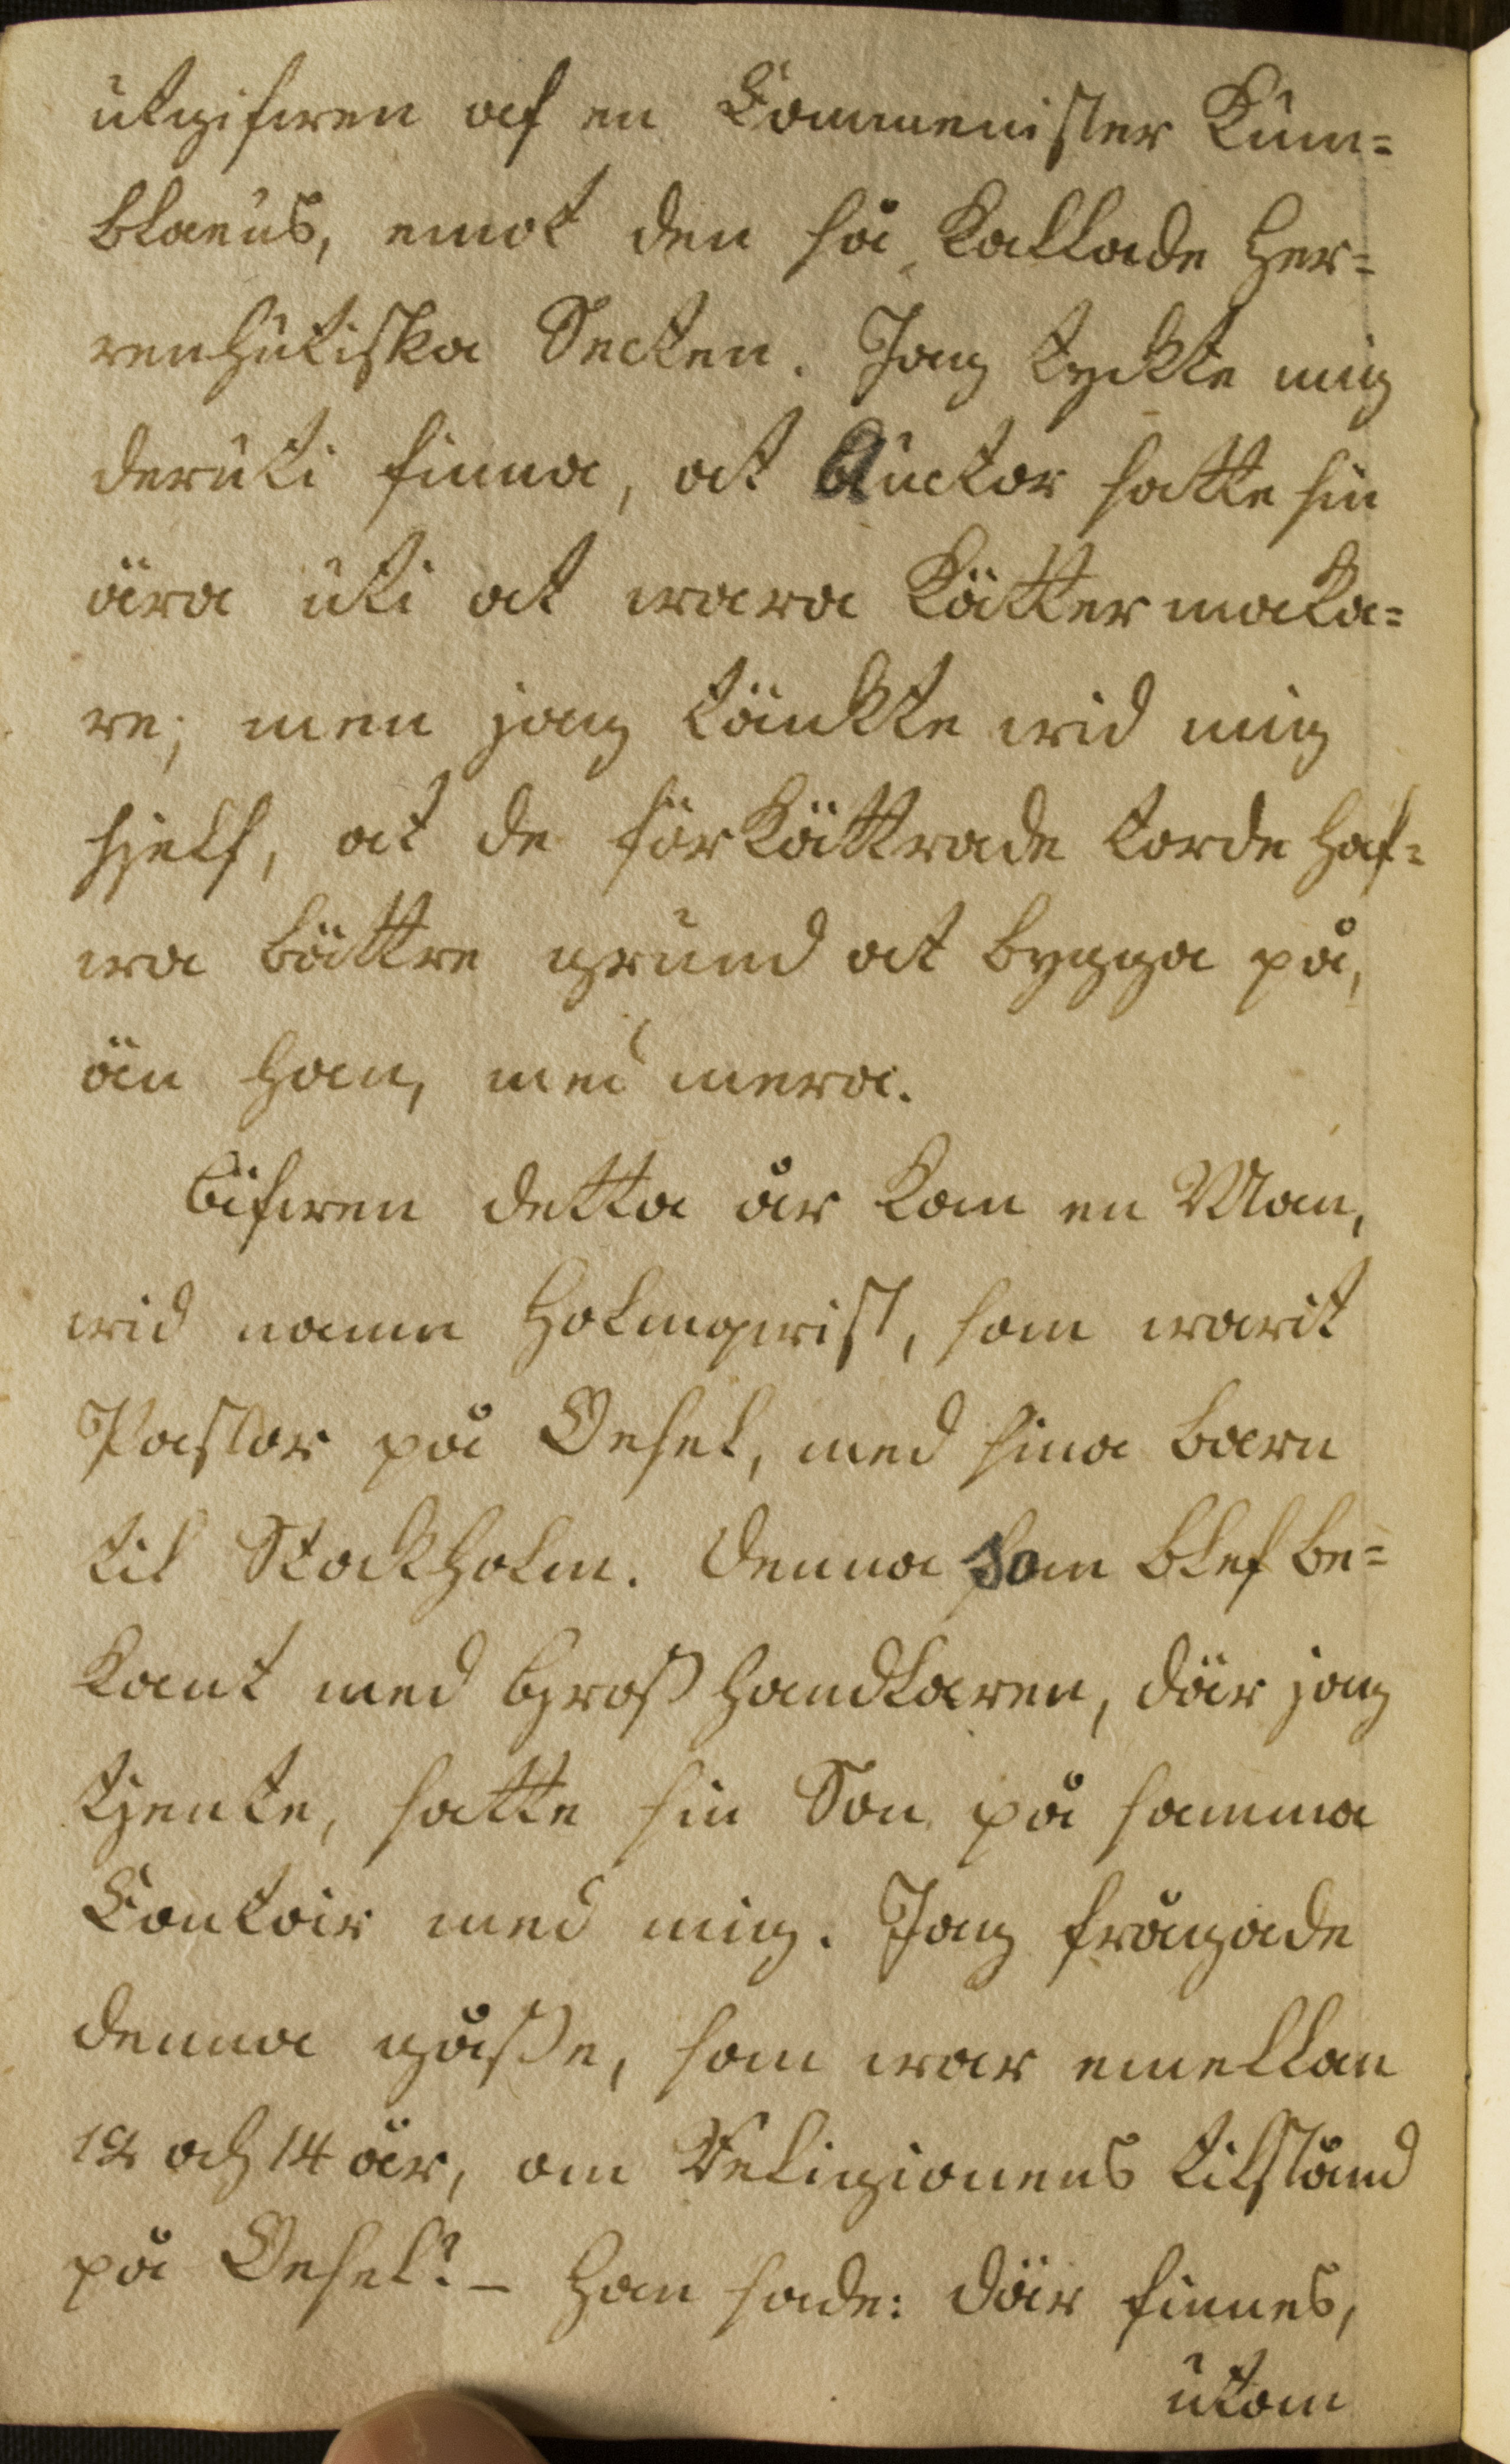 utgifwen af en Commenister Kum=
blaeus, emot den så kallade Her=
renhutiska Secten. Jag tyckte mig
deruti finna, at Auctor satte sin
ära uti at wara Kättermaka=
re; men jag tänkte wid mig
sjelf, at de förkättrade torde haf=
wa bättre grund at bygga på,
än han, med mera.
Äfwen detta år kom en Man,
wid namn Holmqwist, som warit
Pastor på Oesel, med sina barn
til Stockholm. Denna som blef be=
kant med Grosshandlaren, där jag
tjente, satte sin Son på samma
Contoir med mig. Jag frågade
denna gåsse, som war emellan
12 och 14 år, om Religionens tilstånd
på Oesel? – Han sade: Där finnes,
utom